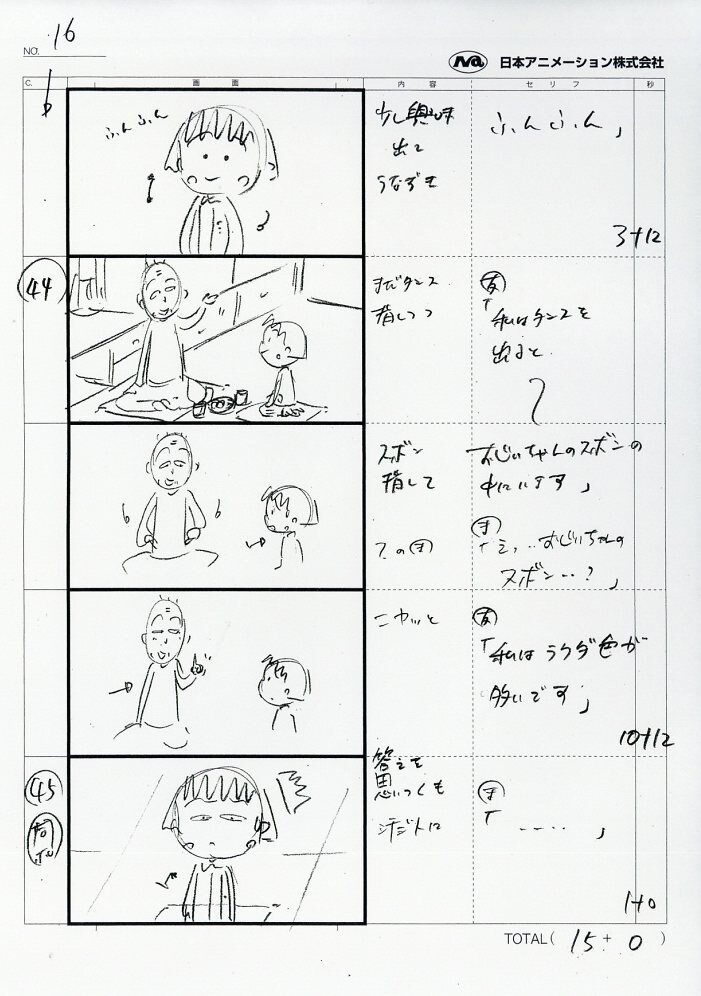 NO. 16
Na 日本アニメーション株式会社
C. 画面 内容 セリフ 秒
ふんふん
少し興味
出て
うなずき
ふんふん」
3+12
44
まだタンス
指しつつ
友
「私はタンスを
出ると
ズボン
指して
おじいちゃんのズボンの
中にいます」
?のま
ま
「えっ‥おじいちゃんの
ズボン‥?」
ニヤッと
友
「私はラクダ色が
多いです」
10+12
45
同ポ
答えを
思いつくも
ジト目に
ま
「‥‥」
1+0
TOTAL( 15 + 0 )